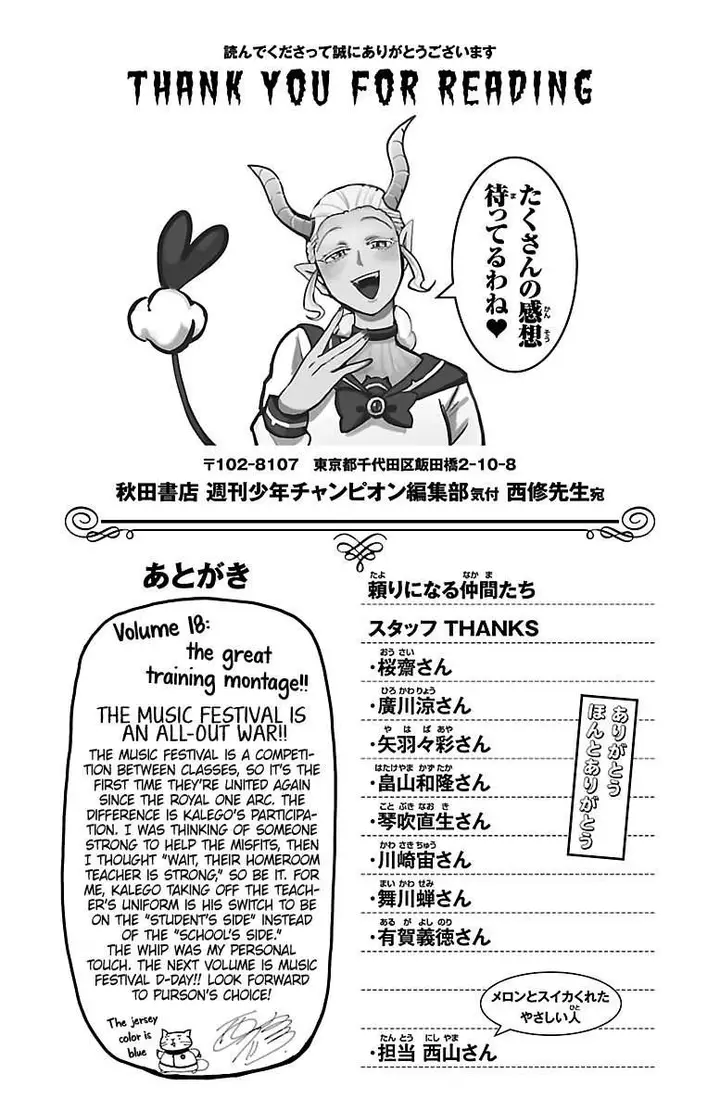 読んでくださって誠にありがとうございます
THANK YOU FOR READING
たくさんの感想
待ってるわね♥
〒102-8107 東京都千代田区飯田橋2-10-8
秋田書店 週刊少年チャンピオン編集部気付 西修先生宛
あとがき
Volume 18:
the great
training montage!!
THE MUSIC FESTIVAL IS
AN ALL-OUT WAR!!
THE MUSIC FESTIVAL IS A COMPETI-
TION BETWEEN CLASSES, SO IT'S THE
FIRST TIME THEY'RE UNITED AGAIN
SINCE THE ROYAL ONE ARC. THE
DIFFERENCE IS KALEGO'S PARTICIPA-
TION. I WAS THINKING OF SOMEONE
STRONG TO HELP THE MISFITS, THEN
I THOUGHT "WAIT, THEIR HOMEROOM
TEACHER IS STRONG," SO BE IT. FOR
ME, KALEGO TAKING OFF THE TEACH-
ER'S UNIFORM IS HIS SWITCH TO BE
ON THE "STUDENT'S SIDE" INSTEAD
OF THE "SCHOOL'S SIDE."
THE WHIP WAS MY PERSONAL
TOUCH. THE NEXT VOLUME IS MUSIC
FESTIVAL D-DAY!! LOOK FORWARD
TO PURSON'S CHOICE!
The jersey
color is
blue
頼りになる仲間たち
スタッフ THANKS
・桜齋さん
・廣川涼さん
・矢羽々彩さん
・畠山和隆さん
・琴吹直生さん
・川崎宙さん
・舞川蝉さん
・有賀義徳さん
ありがとう
ほんとありがとう
メロンとスイカくれた
やさしい人
・担当 西山さん